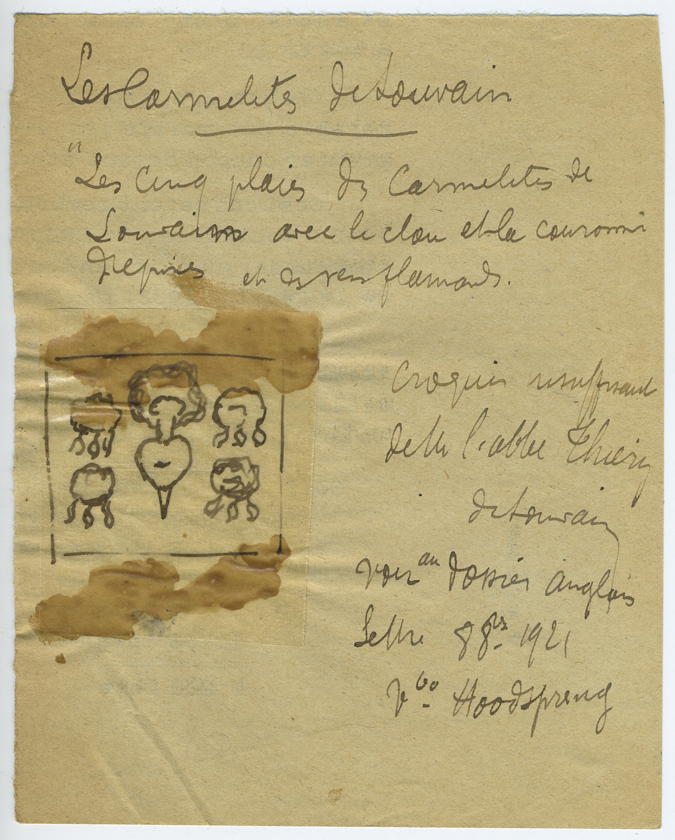 Les Carmelites de Louvain
"Les cinq plaies des Carmelites de
Louvain avec le clou et la couronne
d'epines et des vers flamands.
Croquis insuffisant
de Mr l'abbé Thiéry
de Louvain
voir au dossier anglais
Lettre 88bis 1921
Vbo Hoodspreng